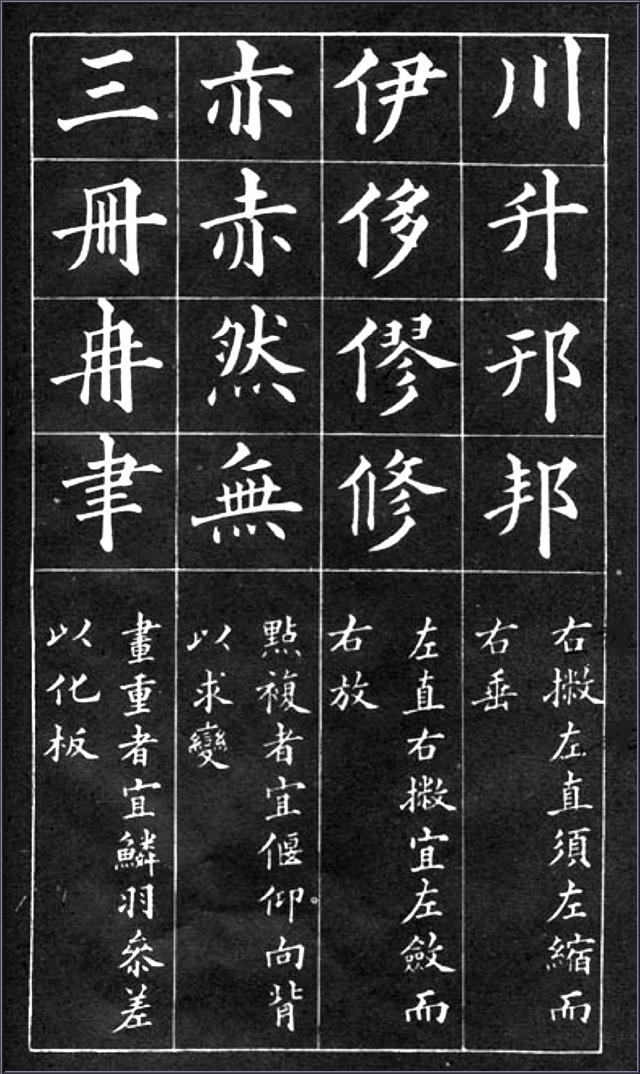 川
升
邦
右撇左直須左縮而
右垂
伊
侈
僇
修
左直右撇宜左斂而
右放
亦
赤
然
無
點複者宜偃仰向背
以求變
三
冊
冉
聿
畫重者宜鱗羽參差
以化板